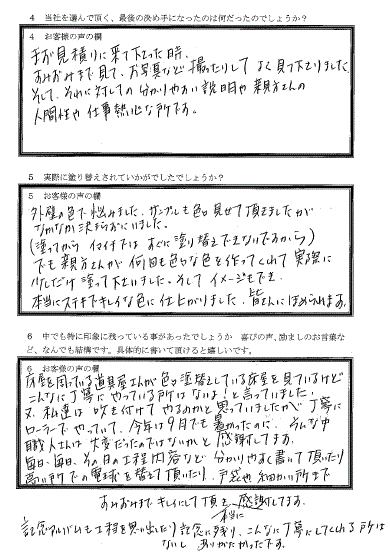 4 当社を選んで頂く、最後の決め手になったのは何だったのでしょうか？
4 お客様の声の欄
お見積りに来て下さった時、
すみずみまで見て、お写真など撮ったりして よく見て下さりました
そして、それに対しての 分かりやすい説明や 親方さんの
人間性や 仕事熱心な所です。
5 実際に塗り替えされていかがでしたでしょうか？
5 お客様の声の欄
外壁の色で悩みました。サンプルも色々見せて頂きましたが
なかなか決まらずにいました。
(塗ってから イマイチでは すぐに塗り替えできないですから)
でも 親方さんが 何回も色々な色を作ってくれて 実際に
少しだけ塗って下さいました。そして イメージもでき
本当にステキでキレイな色に仕上がりました。皆さんにほめられます。
6 中でも特に印象に残っている事があったでしょうか 喜びの声、励ましのお言葉な
ど、なんでも結構です。具体的に書いて頂けると嬉しいです。
6 お客様の声の欄
床屋を周っている道具屋さんが色々塗替している床屋を見ているけど
こんなに丁寧に やっている所はないよ！と言っていました。
又、私達は 吹き付けで やるのかと思っていましたが 丁寧に
ローラーで やっていて、今年は9月でも暑かったのに、そんな中
職人さんは 大変だったのではないかと 感謝してます。
毎日、毎日、その日の工程内容など 分かりやすく書いて頂いたり
高い所での電球を替えて頂いたり、戸袋や細かい所まで
すみずみまでキレイにして頂き 本当に 感謝してます。
記念アルバムも工程を思い出したり 記念に残り、こんなに丁寧にしてくれる所は
ないし ありがたかったです。